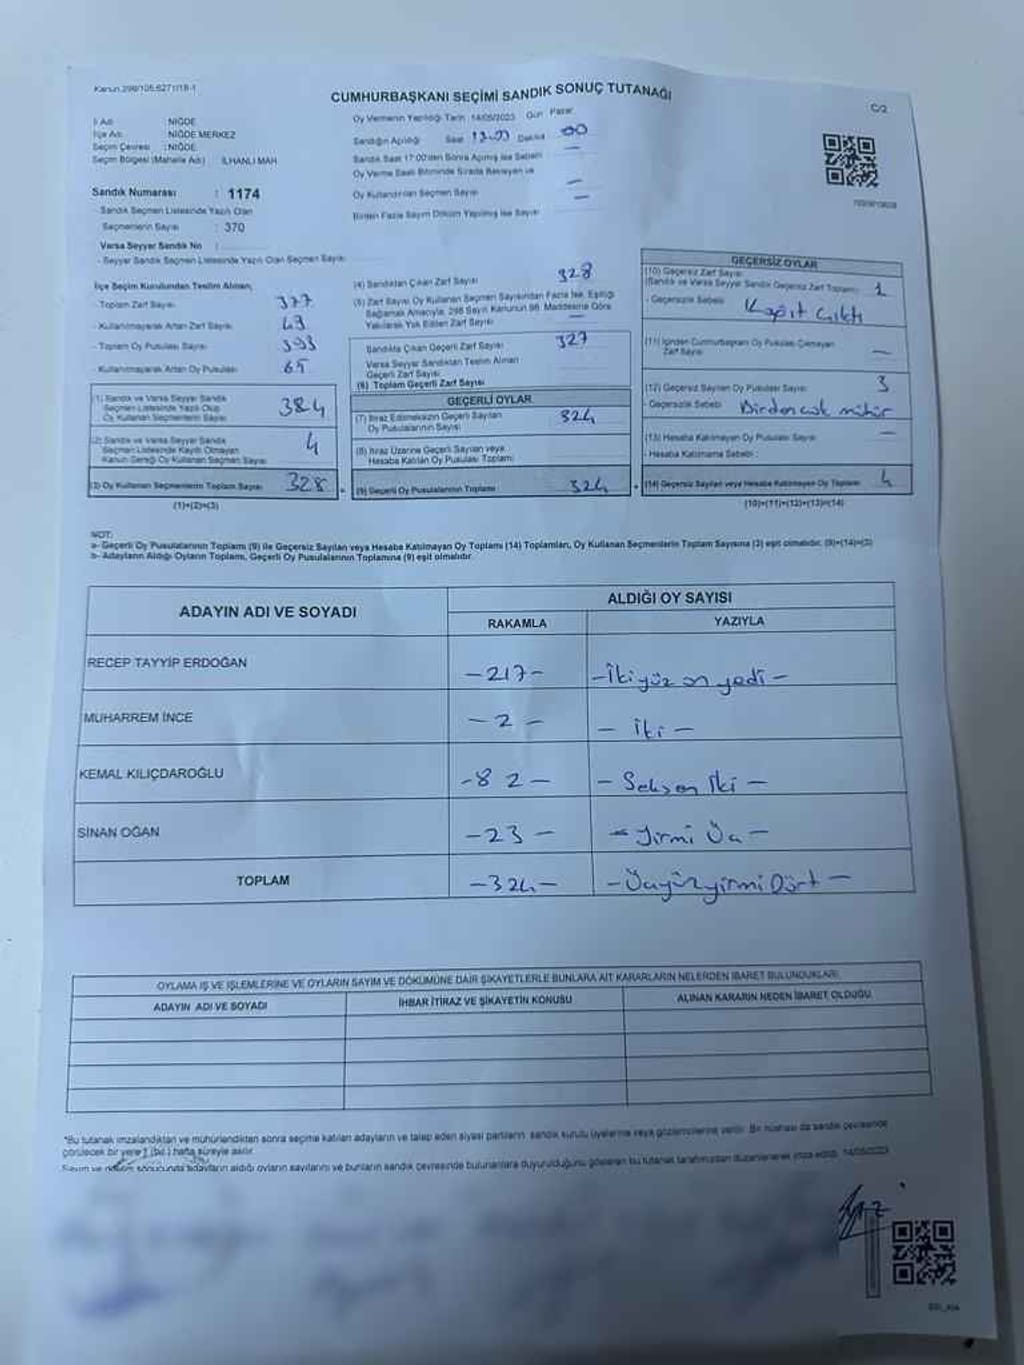 Kanun 298/105.6271/18-1
CUMHURBAŞKANI SEÇİMİ SANDIK SONUÇ TUTANAĞI
C/2
İl Adı : NİĞDE
İlçe Adı : NİĞDE MERKEZ
Seçim Çevresi : NİĞDE
Seçim Bölgesi (Mahalle Adı) : İLHANLI MAH
Sandık Numarası : 1174
- Sandık Seçmen Listesinde Yazılı Olan
Seçmenlerin Sayısı : 370
Varsa Seyyar Sandık No :
- Seyyar Sandık Seçmen Listesinde Yazılı Olan Seçmen Sayısı
Oy Vermenin Yapıldığı Tarih 14/05/2023 Gün Pazar
Sandığın Açıldığı Saat Dakika 00
Sandık Saat 17:00'den Sonra Açılmış İse Sebebi —
Oy Verme Saati Bitiminde Sırada Bekleyen ve
Oy Kullandırılan Seçmen Sayısı —
Birden Fazla Sayım Döküm Yapılmış İse Sayısı —
İlçe Seçim Kurulundan Teslim Alınan;
- Toplam Zarf Sayısı 377
- Kullanılmayarak Artan Zarf Sayısı
- Toplam Oy Pusulası Sayısı 393
- Kullanılmayarak Artan Oy Pusulası 65
(1) Sandık ve Varsa Seyyar Sandık
Seçmen Listesinde Yazılı Olup
Oy Kullanan Seçmenlerin Sayısı
(2) Sandık ve Varsa Seyyar Sandık
Seçmen Listesinde Kayıtlı Olmayan
Kanun Gereği Oy Kullanan Seçmen Sayısı 4
(3) Oy Kullanan Seçmenlerin Toplam Sayısı 328
(1)+(2)=(3)
(4) Sandıktan Çıkan Zarf Sayısı 328
(5) Zarf Sayısı Oy Kullanan Seçmen Sayısından Fazla İse, Eşitliği
Sağlamak Amacıyla, 298 Sayılı Kanunun 98. Maddesine Göre
Yakılarak Yok Edilen Zarf Sayısı —
Sandıkta Çıkan Geçerli Zarf Sayısı 327
Varsa Seyyar Sandıktan Teslim Alınan
Geçerli Zarf Sayısı
(6) Toplam Geçerli Zarf Sayısı
GEÇERLİ OYLAR
(7) İtiraz Edilmeksizin Geçerli Sayılan
Oy Pusulalarının Sayısı 324
(8) İtiraz Üzerine Geçerli Sayılan veya
Hesaba Katılan Oy Pusulası Toplamı
(9) Geçerli Oy Pusulalarının Toplamı 324
GEÇERSİZ OYLAR
(10) Geçersiz Zarf Sayısı
(Sandık ve Varsa Seyyar Sandık Geçersiz Zarf Toplamı) 1
- Geçersizlik Sebebi Kağıt Çıktı
(11) İçinden Cumhurbaşkanı Oy Pusulası Çıkmayan
Zarf Sayısı —
(12) Geçersiz Sayılan Oy Pusulası Sayısı 3
- Geçersizlik Sebebi Birden çok mühür
(13) Hesaba Katılmayan Oy Pusulası Sayısı —
- Hesaba Katılmama Sebebi :
(14) Geçersiz Sayılan veya Hesaba Katılmayan Oy Toplamı 4
(10)+(11)+(12)+(13)=(14)
NOT:
a- Geçerli Oy Pusulalarının Toplamı (9) ile Geçersiz Sayılan veya Hesaba Katılmayan Oy Toplamı (14) Toplamları, Oy Kullanan Seçmenlerin Toplam Sayısına (3) eşit olmalıdır. (9)+(14)=(3)
b- Adayların Aldığı Oyların Toplamı, Geçerli Oy Pusulalarının Toplamına (9) eşit olmalıdır.
ADAYIN ADI VE SOYADI
ALDIĞI OY SAYISI
RAKAMLA YAZIYLA
RECEP TAYYİP ERDOĞAN -217- -İkiyüz on yedi-
MUHARREM İNCE -2- -İki-
KEMAL KILIÇDAROĞLU -82- -Seksen İki-
SİNAN OĞAN -23- -Yirmi Üç-
TOPLAM -324- -Üçyüzyirmi Dört-
OYLAMA İŞ VE İŞLEMLERİNE VE OYLARIN SAYIM VE DÖKÜMÜNE DAİR ŞİKAYETLERLE BUNLARA AİT KARARLARIN NELERDEN İBARET BULUNDUKLARI
ADAYIN ADI VE SOYADI
İHBAR İTİRAZ VE ŞİKAYETİN KONUSU
ALINAN KARARIN NEDEN İBARET OLDUĞU
"Bu tutanak imzalandıktan ve mühürlendikten sonra seçime katılan adayların ve talep eden siyasi partilerin sandık kurulu üyelerine veya gözlemcilerine verilir. Bir nüshası da sandık çevresinde
görülecek bir yere 1 (bir) hafta süreyle asılır.
Sayım ve döküm sonucunda adayların aldığı oyların sayılarını ve bunların sandık çevresinde bulunanlara duyurulduğunu gösteren bu tutanak tarafımızdan düzenlenerek imza edildi. 14/05/2023